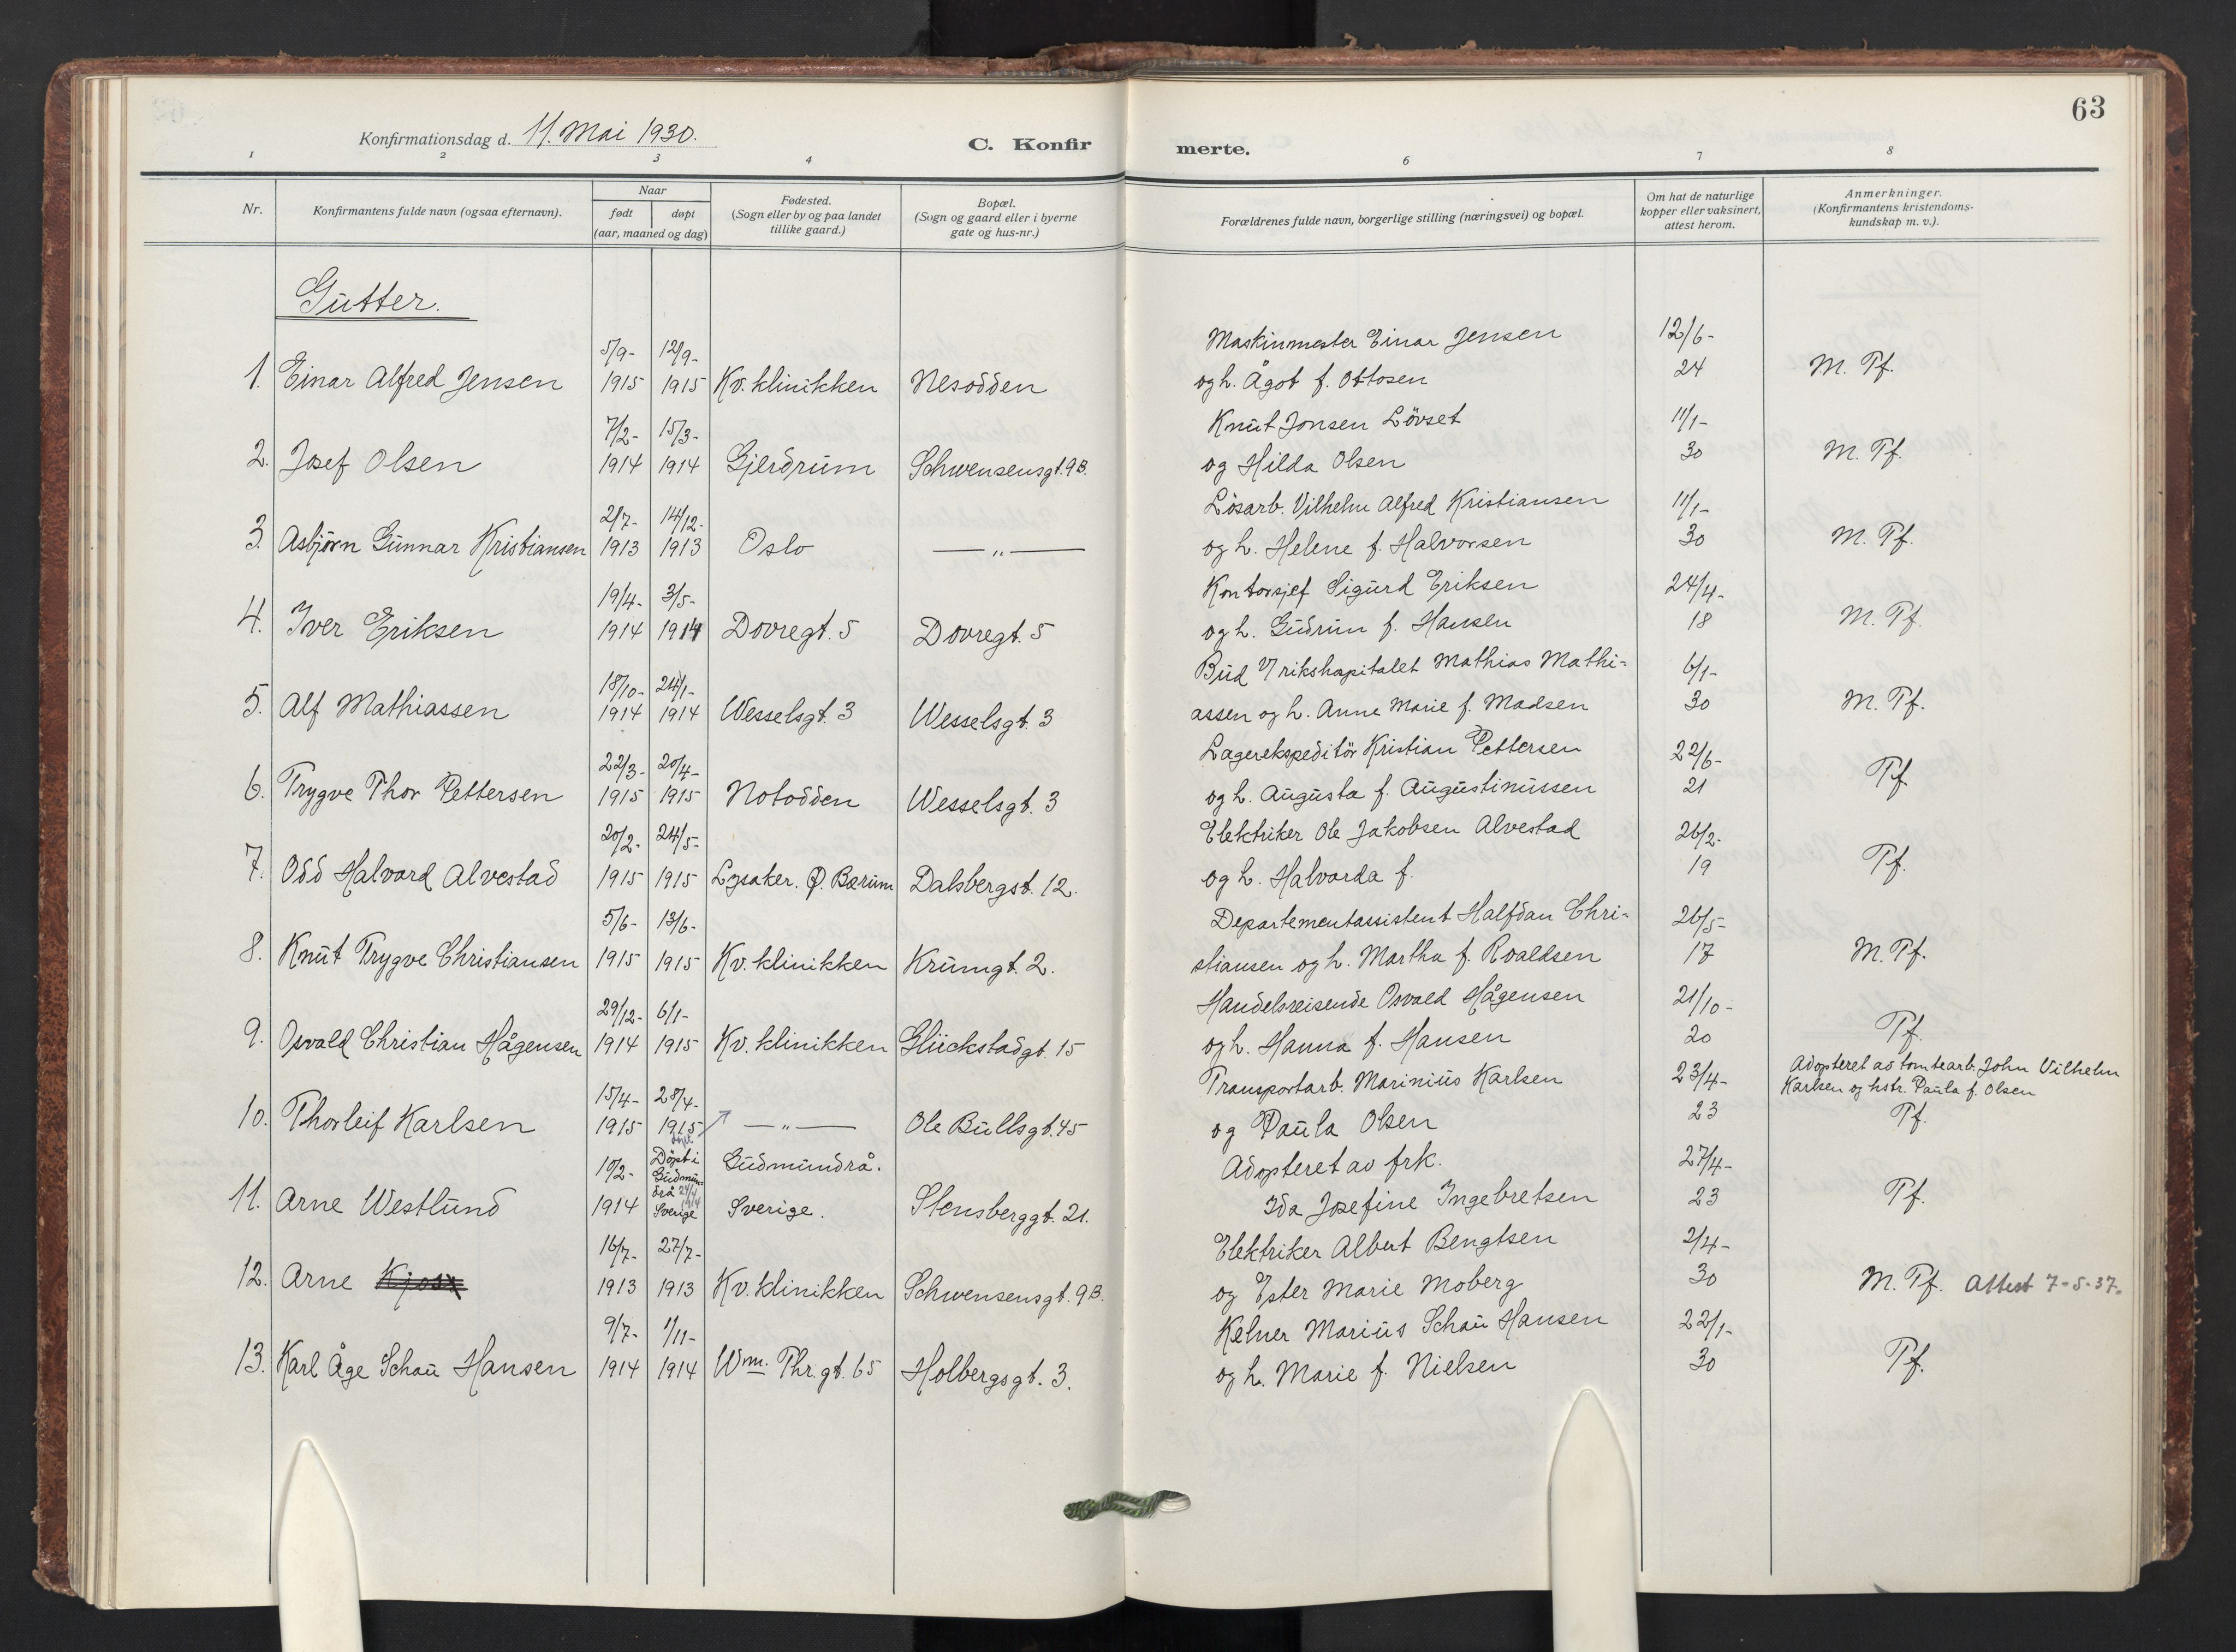 63
Konfirmationsdag d. 11. Mai 1930.
C. Konfirmerte.
1 2 3 4 6 7 8
Nr.
Konfirmantens fulde navn (ogsaa efternavn).
Naar
født døpt
(aar, maaned og dag)
Fødested.
(Sogn eller by og paa landet
tillike gaard.)
Bopæl.
(Sogn og gaard eller i byerne
gate og hus-nr.)
Forældrenes fulde navn, borgerlige stilling (næringsvei) og bopæl.
Om hat de naturlige
kopper eller vaksinert,
attest herom.
Anmerkninger.
(Konfirmantens kristendoms-
kundskap m. v.).
Gutter.
5/9- 12/9- Maskinmester Einar Jensen 12/6-
1. Einar Alfred Jensen 1915 1915 Kv. klinikken Nesodden og h. Ågot f. Ottosen 24 M. Pf.
7/2- 15/3- Knut Jonsen Lövset 11/1-
2. Josef Olsen 1914 1914 Gjerdrum Schwensensgt. 9B. og Hilda Olsen 30 M. Pf.
2/7- 14/12- Lösarb. Vilhelm Alfred Kristiansen 11/1-
3. Asbjörn Gunnar Kristiansen 1913 1913 Oslo — „ — og h. Helene f. Halvorsen 30 M. Pf.
19/4- 3/5- Kontorsjef Sigurd Eriksen 24/4-
4. Iver Eriksen 1914 1914 Dovregt. 5 Dovregt. 5 og h. Gudrun f. Hansen 18 M. Pf.
18/10- 24/1- Bud v/ rikshospitalet Mathias Mathi- 6/1-
5. Alf Mathiassen 1914 1914 Wesselsgt. 3 Wesselsgt. 3 assen og h. Anne Marie f. Madsen 30 M. Pf.
22/3- 20/4- Lagerekspeditör Kristian Pettersen 22/6-
6. Trygve Thor Pettersen 1915 1915 Notodden Wesselsgt. 3 og h. Augusta f. Augustinussen 21 Pf.
20/2- 24/5- Elektriker Ole Jakobsen Alvestad 26/2-
7. Odd Halvard Alvestad 1915 1915 Lysaker. Ø. Bærum Dalsbergst. 12. og h. Halvarda f. 19 Pf.
5/6- 13/6- Departementassistent Halfdan Chri- 26/5-
8. Knut Trygve Christiansen 1915 1915 Kv. klinikken Krumgt. 2. stiansen og h. Martha f. Roaldsen 17 M. Pf.
29/12- 6/1- Handelsreisende Osvald Hågensen 21/10-
9. Osvald Christian Hågensen 1914 1915 Kv. klinikken Glückstadgt. 15 og h. Hanna f. Hansen 20 Pf.
15/4- 28/4- Transportarb. Marinius Karlsen 23/4- Adopteret av tomtearb. John Vilhelm
Karlsen og hstr. Paula f. Olsen
10. Thorleif Karlsen 1915 1915 — „ — Ole Bullsgt. 45 og Paula Olsen 23 Pf.
10/2- Döpt i Gudmundrå. Adopteret av frk. 27/4-
Gudmun-
drå 24/4
11. Arne Westlund 1914 Sverige 1914 Sverige. Stensberggt. 21. Ida Josefine Ingebretsen 23 Pf.
16/7- 27/7- Elektriker Albert Bengtsen 2/4-
12. Arne Kjosx 1913 1913 Kv. klinikken Schwensensgt. 9B. og Ester Marie Moberg 30 M. Pf. Attest 7-5-37.
9/7- 1/11- Kelner Marius Schau Hansen 22/1-
13. Karl Åge Schau Hansen 1914 1914 Wm. Thr. gt. 65 Holbergsgt. 3. og h. Marie f. Nielsen 30 Pf.